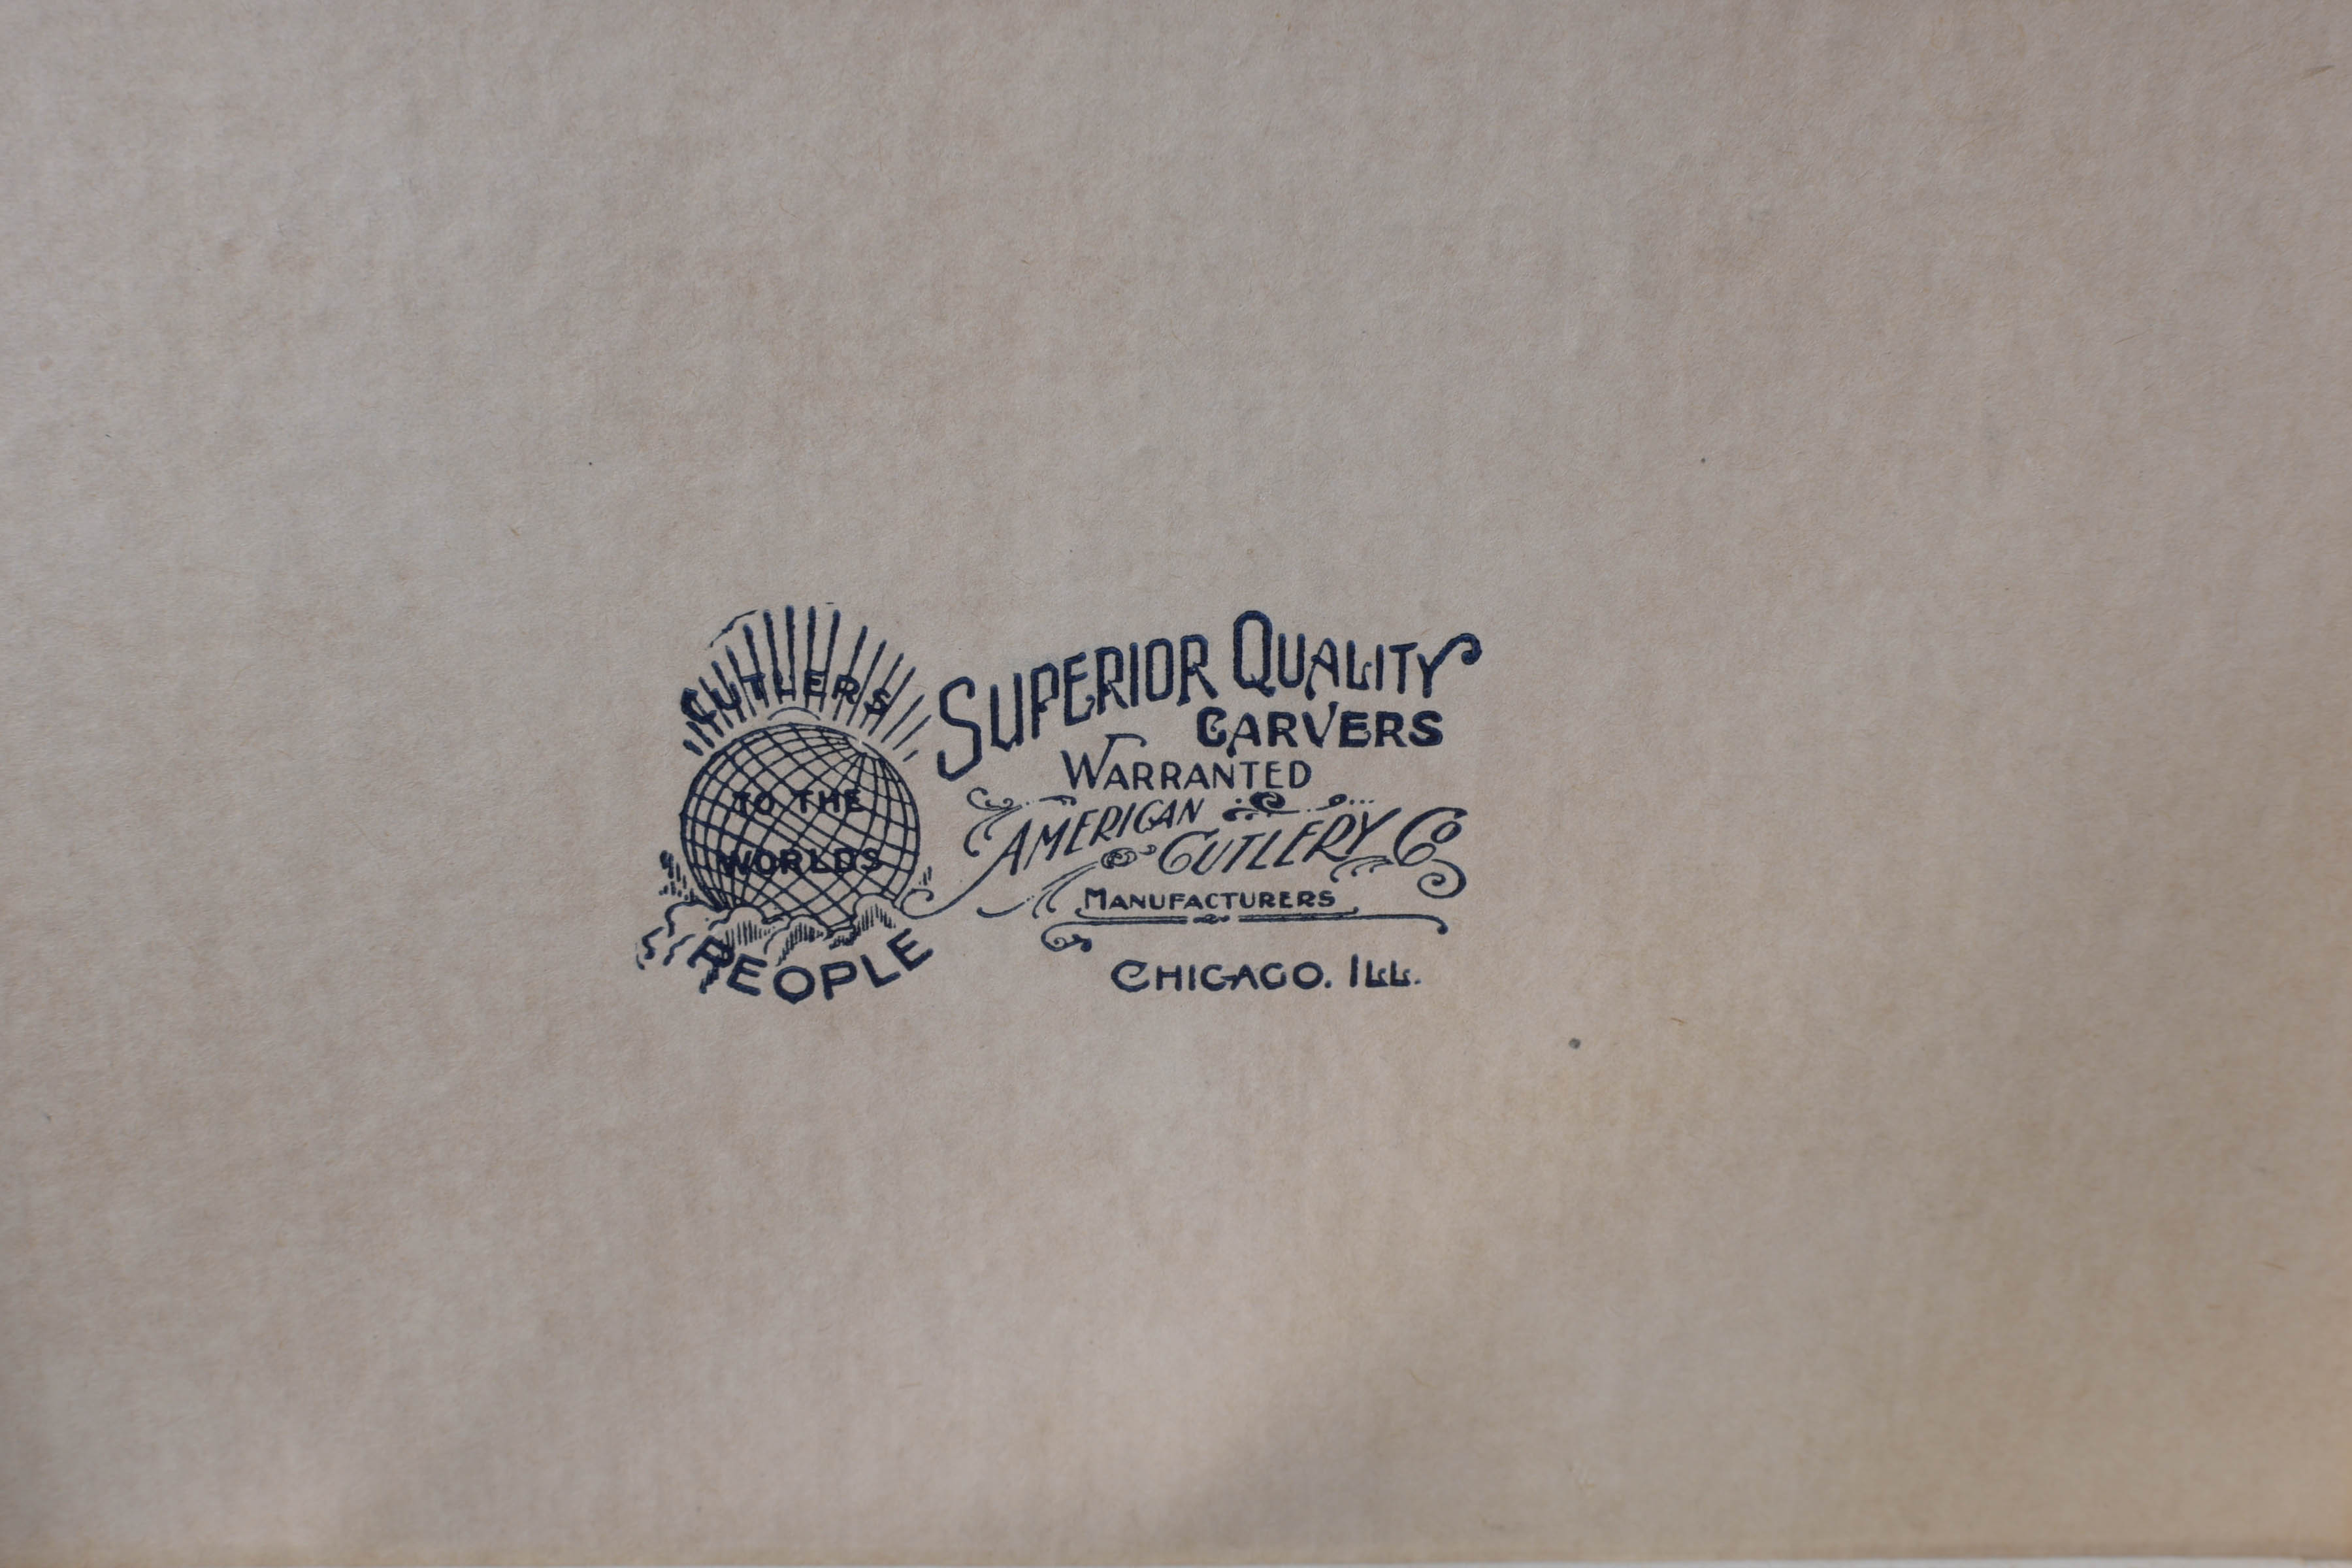 CUTLERS
TO THE
WORLDS
PEOPLE
SUPERIOR QUALITY
CARVERS
WARRANTED
AMERICAN
CUTLERY CO
MANUFACTURERS
CHICAGO. ILL.